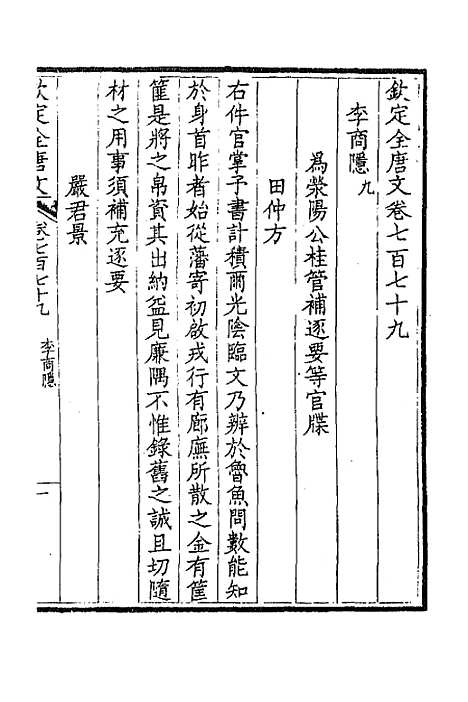 欽定全唐文卷七百七十九
李商隱九
爲滎陽公桂管補逐要等官牒
田仲方
右件官掌予書計積爾光陰臨文乃辨於魯魚問數能知
於身首昨者始從藩寄初啟戎行有廊廡所散之金有筐
篚是將之帛資其出納益見廉隅不惟錄舊之誠且切隨
材之用事須補充逐要
嚴君景
欽定全唐文
卷七百七十九
李商隱
一